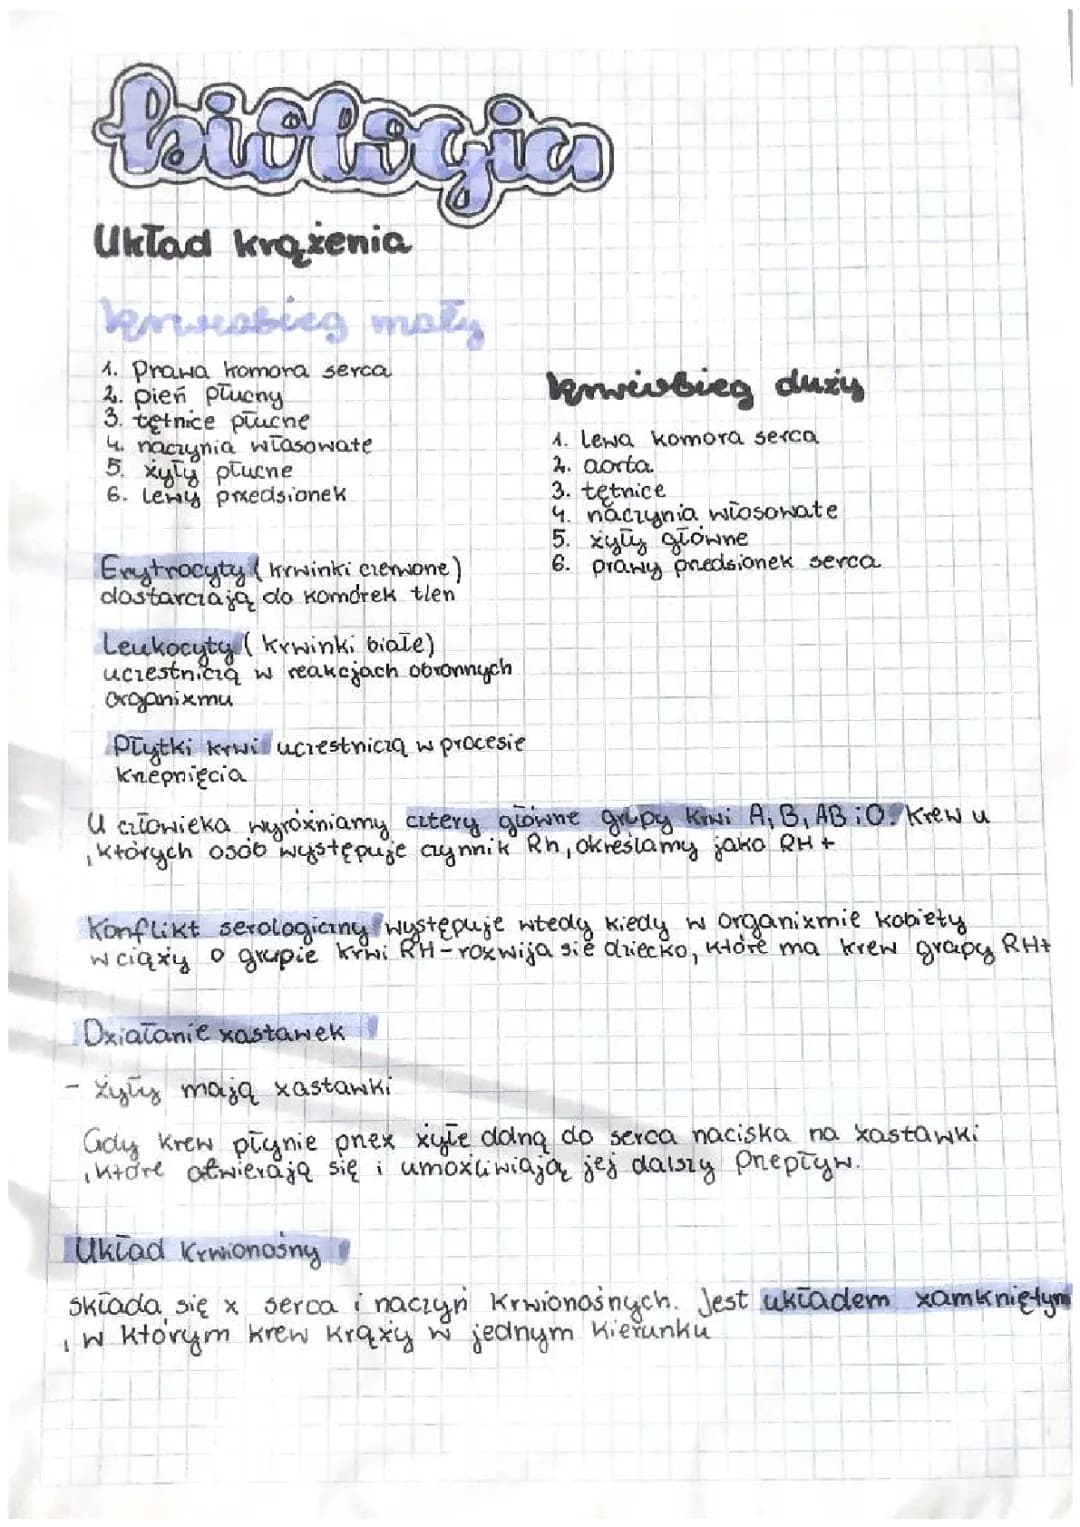 biologia
Układ krążenia
krwiobieg mały
1. Prawa komora serca
2. pień płucny
3. tętnice płucne
4. naczynia włosowate
5. żyły płucne
6. Lewy przedsionek
krwiobieg duży
1. Lewa komora serca
2. aorta
3. tętnice
4. naczynia włosowate
5. żyły główne
6. prawy przedsionek serca
Erytrocyty (krwinki czerwone)
dostarczają do komórek tlen
Leukocyty (krwinki białe)
uczestniczą w reakcjach obronnych
organizmu
Płytki krwi uczestniczą w procesie
krzepnięcia
U człowieka wyróżniamy cztery główne grupy krwi A, B, AB i O. Krew u
, których osób występuje czynnik Rh, określamy jako RH +
Konflikt serologiczny występuje wtedy kiedy w organizmie kobiety
w ciąży o grupie krwi RH- rozwija sie dziecko, które ma krew grupy RH+
Działanie zastawek
- żyły mają zastawki
Gdy krew płynie przez żyłe dolną do serca naciska na zastawki
, które otwierają się i umożliwiają jej dalszy przepływ.
Układ krwionośny
składa się z serca i naczyń krwionośnych. Jest układem zamkniętym
, w którym krew krąży w jednym kierunku